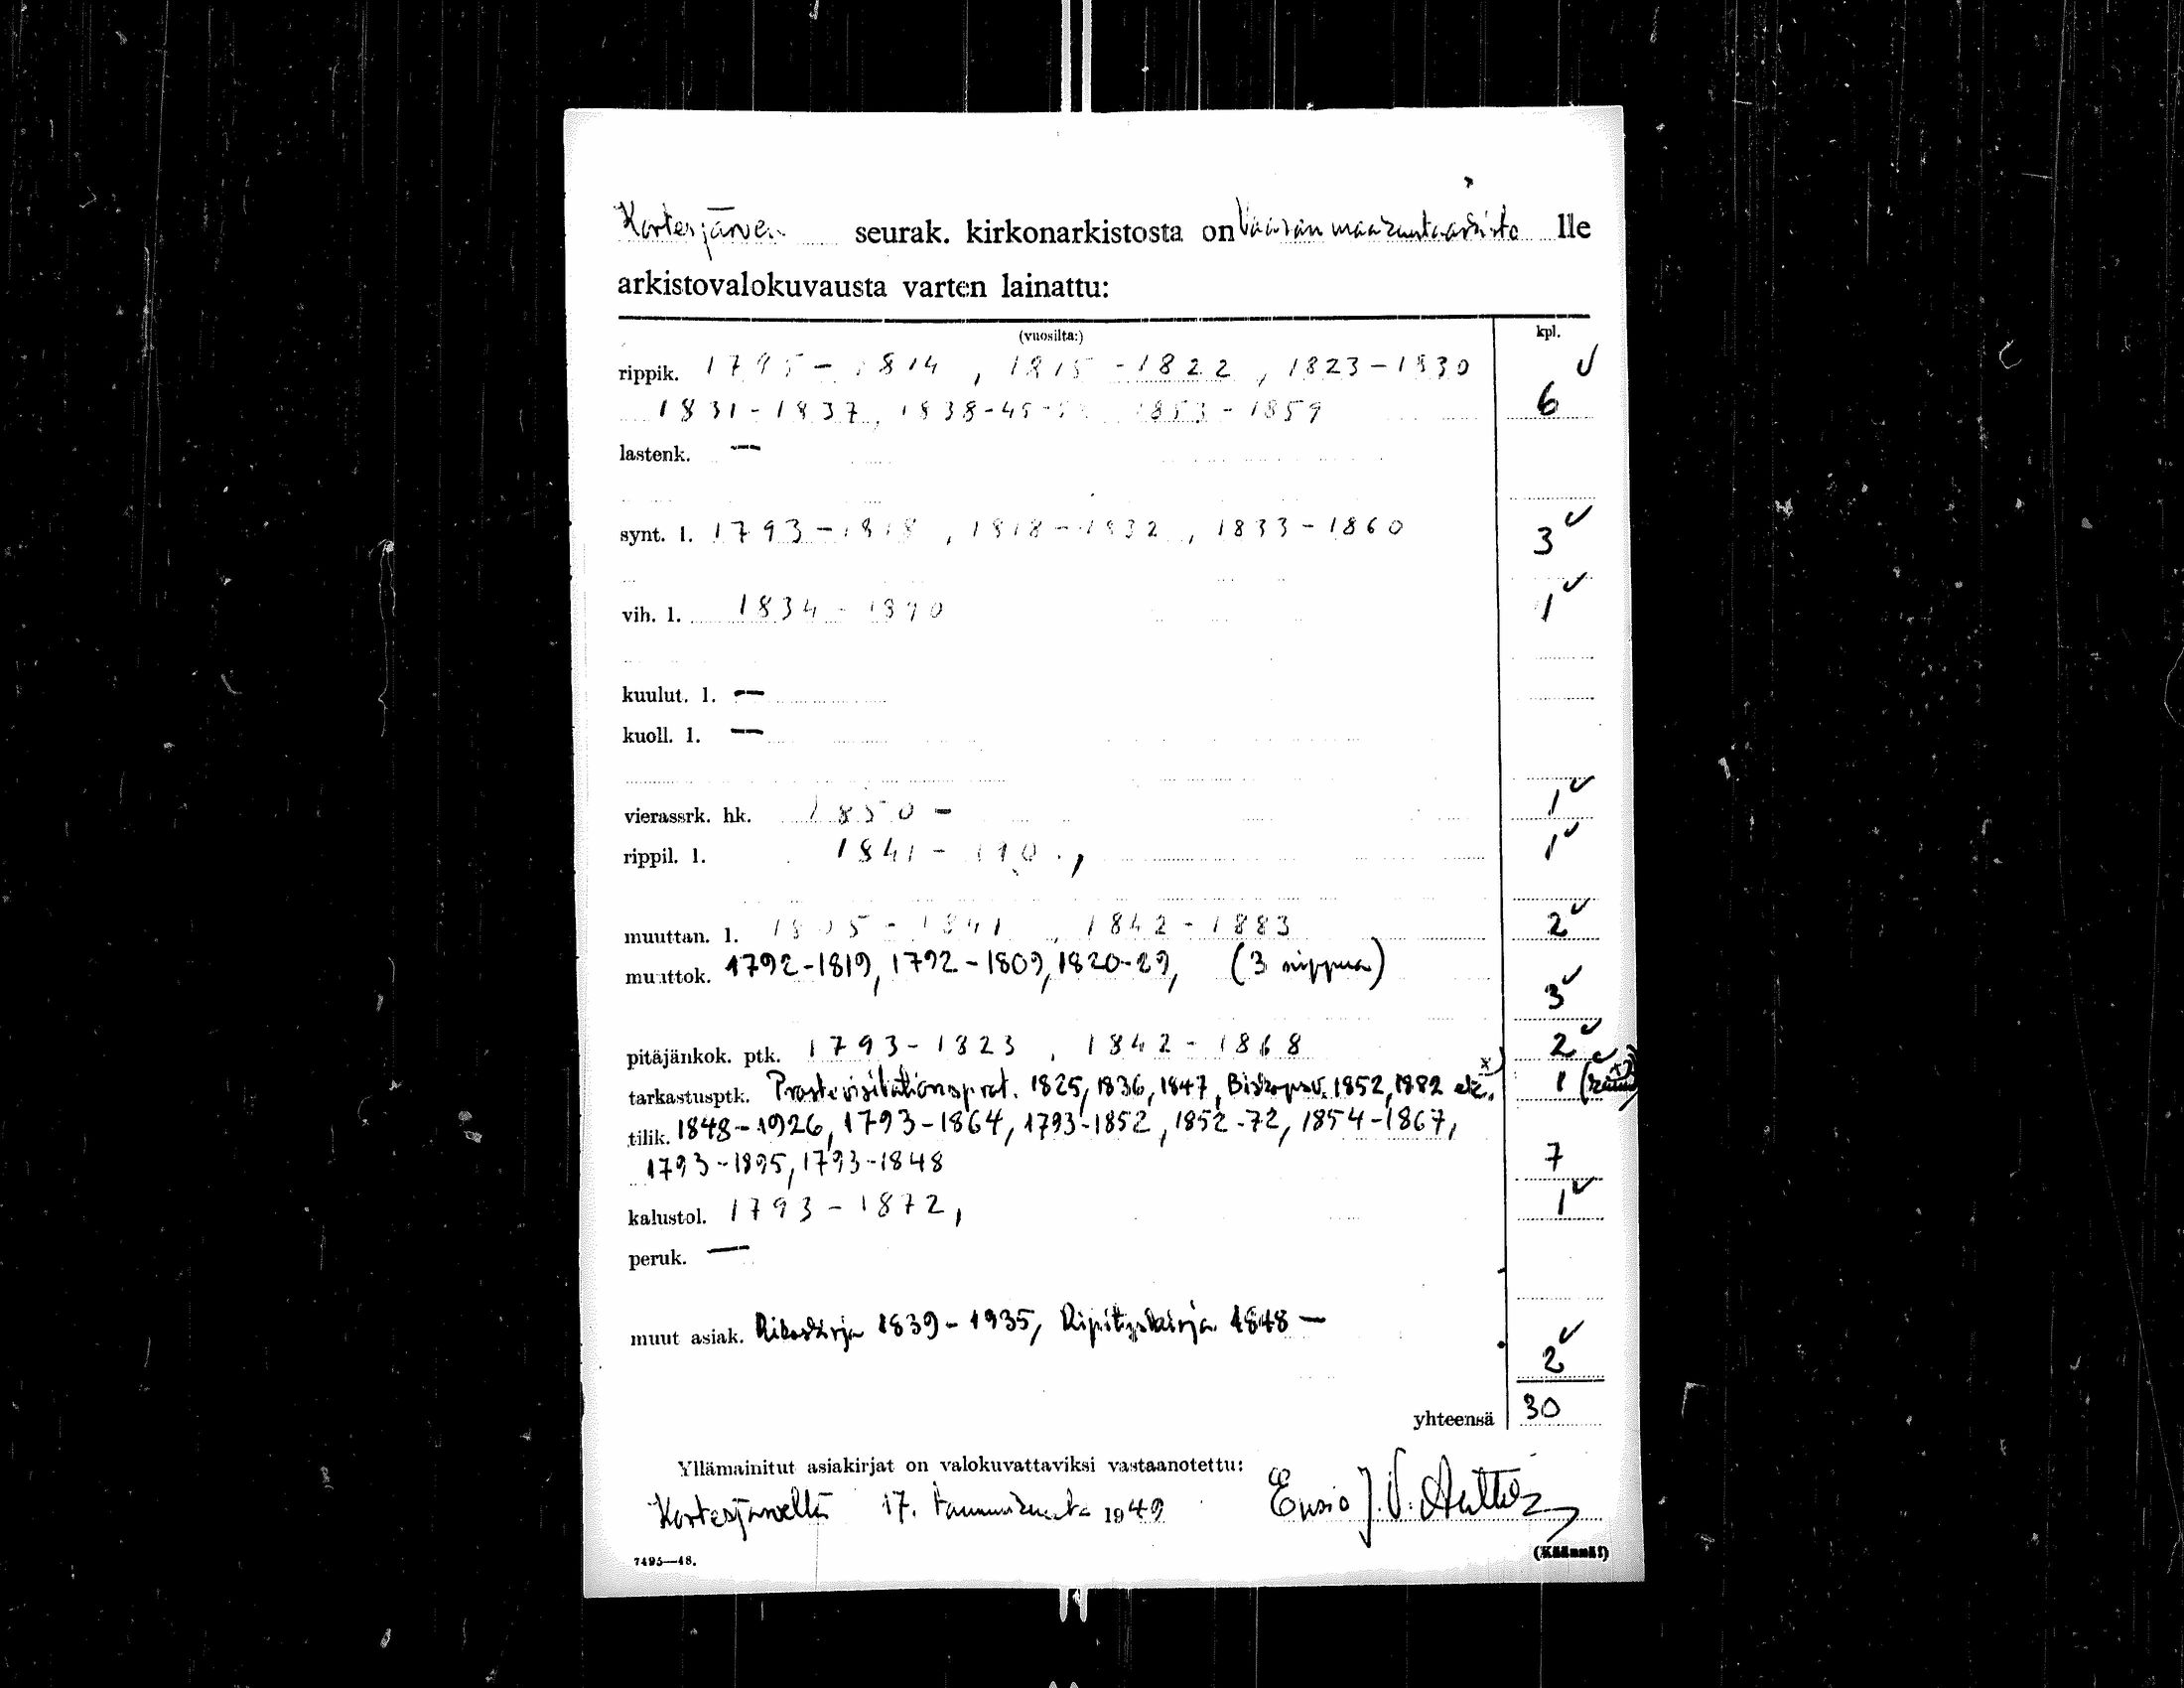 Kortesjärven seurak. kirkonarkistosta on Vaasan maakunta-arkisto lle
arkistovalokuvausta varten lainattu:
(vuosilta:) kpl.
rippik. 1795 – 1814 , 1815 - 1822 , 1823 – 1830
1831 - 1837, 1838-45- 1853 - 1859 6
lastenk. —
synt. l. 1793 – 1818 , 1818 – 1832 , 1833 – 1860 3
vih. l. 1834 - 1890 1
kuulut. l. —
kuoll. l. —
vierassrk. hk. 1850 – 1
rippil. l. 1841 - , 1
muuttan. l. 1805 - 1841 , 1842 - 1883 2
muuttok. 1792-1819, 1792-1809, 1820-29, (3 nippua) 3
pitäjänkok. ptk. 1793-1823 , 1842-1868 2
tarkastusptk. Prostevisitationsprot. 1825, 1836, 1847, Biskopsv. 1852, 1882 etc. x) 1
tilik. 1848-1926, 1793-1864, 1793-1852, 1852-72, 1854-1867,
1793-1895, 1793-1848 7
kalustol. 1793 - 1872, 1
peruk. —
muut asiak. Rikoskirja 1839-1935, Ripityskirja 1848 — 2
yhteensä 30
Yllämainitut asiakirjat on valokuvattaviksi vastaanotettu:
Kortesjärvellä 17. tammikuuta 1949 Ensio J. V.
7495—48. (Käännä!)